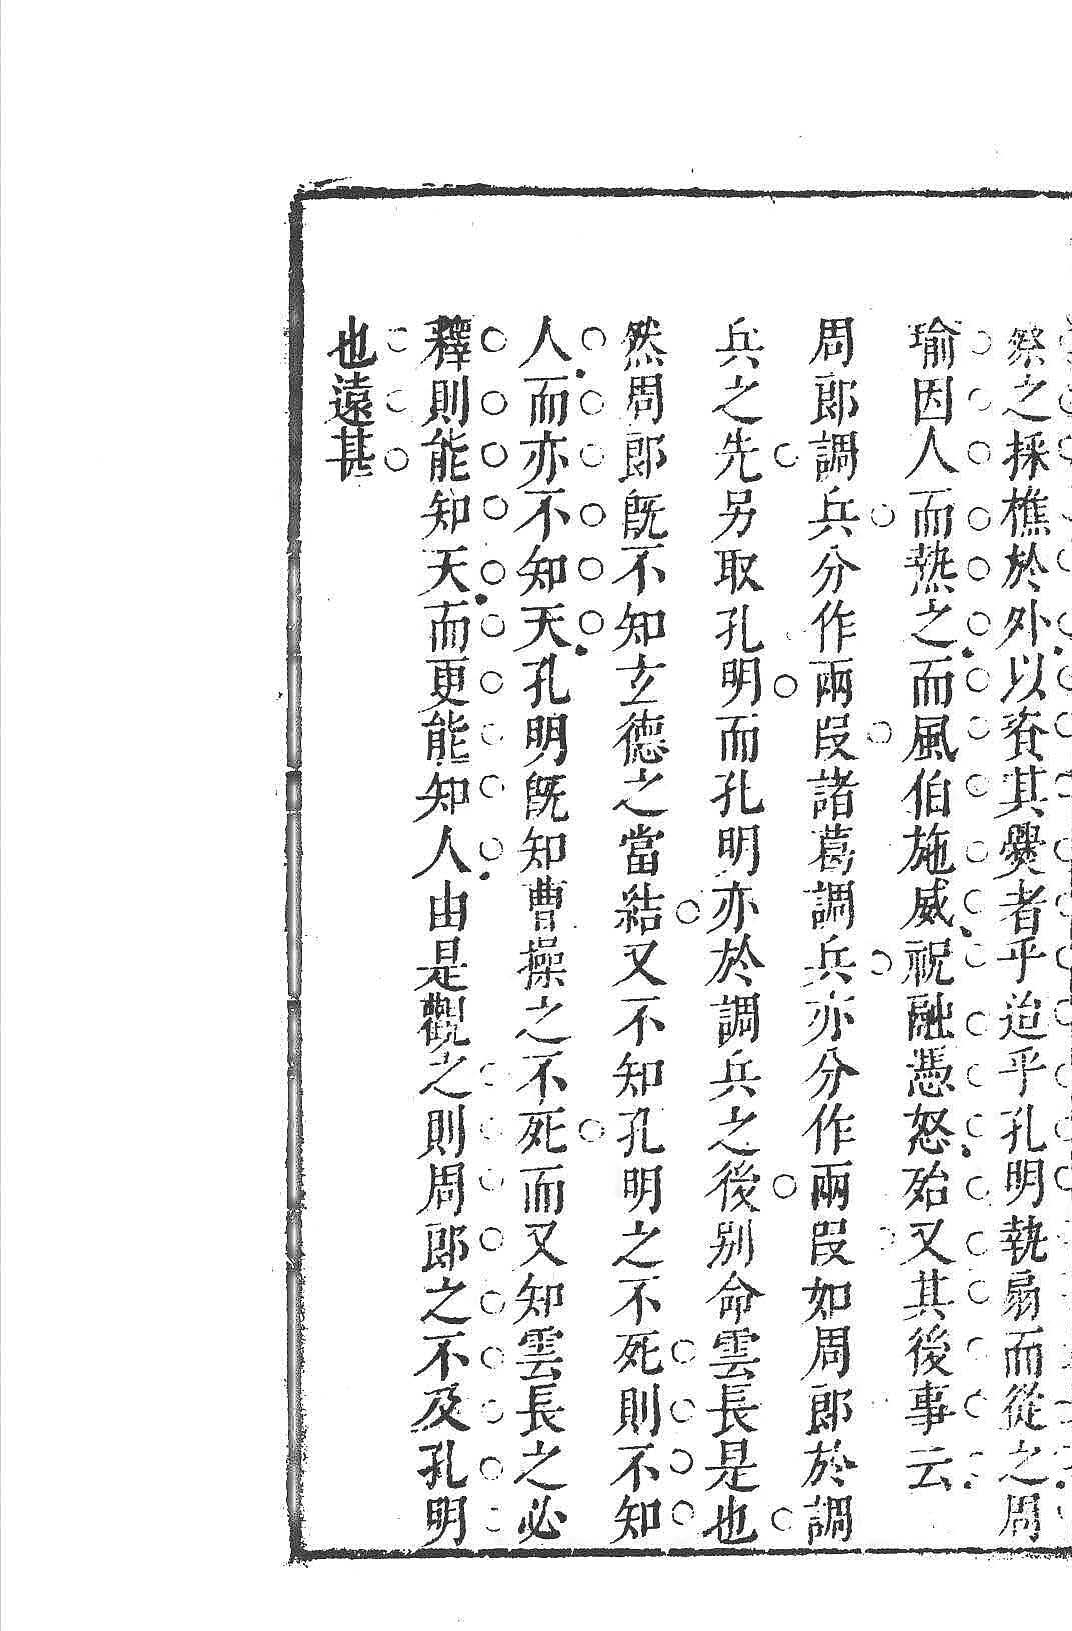 祭之採樵於外以資其爨者乎迨乎孔明執扇而從之周
瑜因人而熱之而風伯施威祝融憑怒殆又其後事云
周郎調兵分作兩段諸葛調兵亦分作兩段如周郎於調
兵之先另取孔明而孔明亦於調兵之後别命雲長是也
然周郎既不知玄德之當結又不知孔明之不死則不知
人而亦不知天孔明旣知曹操之不死而又知雲長之必
釋則能知天而更能知人由是觀之則周郎之不及孔明
也遠甚